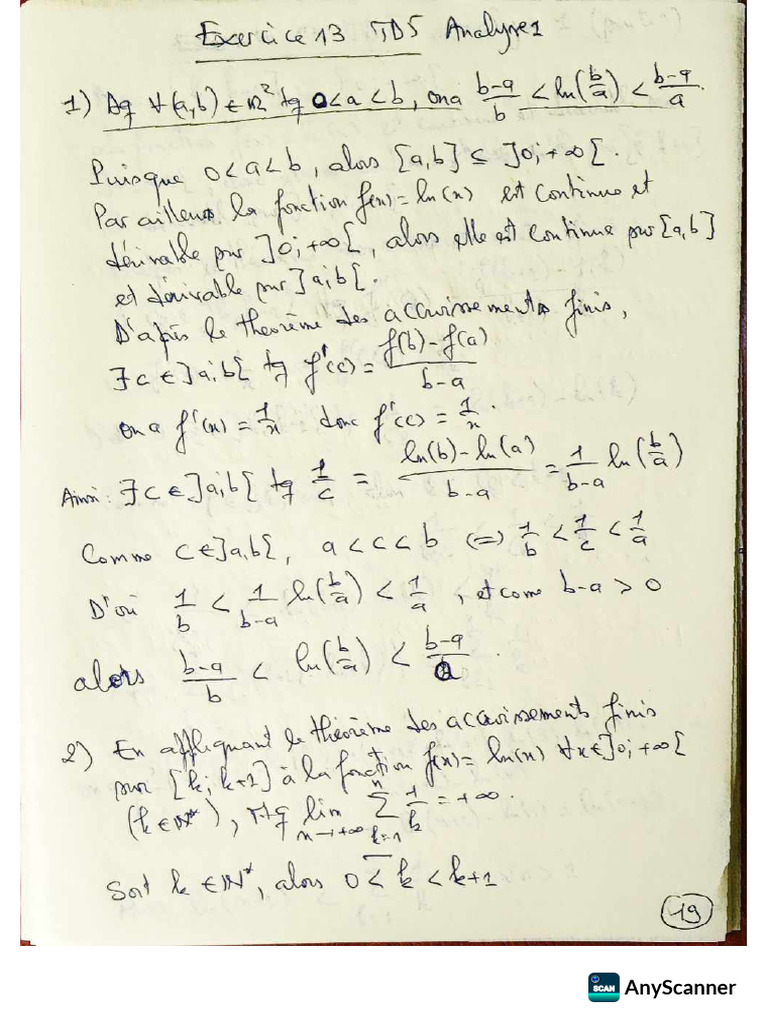 Exercice 13 TD5 Analyse 1
1) Mq ∀(a,b) ∈ ℝ² tq 0<a<b, on a (b-a)/b < ln(b/a) < (b-a)/a.
Puisque 0<a<b, alors [a,b] ⊆ ]0;+∞[.
Par ailleurs la fonction f(x)=ln(x) est continue et
dérivable sur ]0;+∞[, alors elle est continue sur [a,b]
et dérivable sur ]a;b[.
D'après le théorème des accroissements finis,
∃c ∈ ]a;b[ tq f'(c) = (f(b)-f(a))/(b-a)
on a f'(x) = 1/x donc f'(c) = 1/x.
Ainsi: ∃c ∈ ]a;b[ tq 1/c = (ln(b)-ln(a))/(b-a) = 1/(b-a) ln(b/a)
Comme c∈]a,b[, a<c<b (=) 1/b < 1/c < 1/a
D'où 1/b < 1/(b-a) ln(b/a) < 1/a, et come b-a > 0
alors (b-a)/b < ln(b/a) < (b-a)/a.
2) En appliquant le théorème des accroissements finis
sur [k;k+1] à la fonction f(x)= ln(x) ∀x∈]0;+∞[
(k∈ℕ*), Mq lim n→+∞ ∑ k=1 n 1/k = +∞.
Soit k ∈ ℕ*, alors 0 < k < k+1
19
SCAN AnyScanner